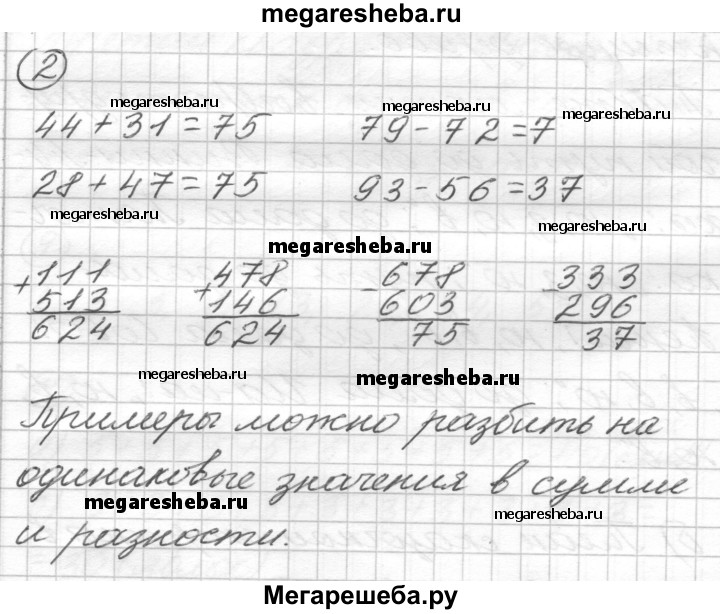 megaresheba.ru
2
megaresheba.ru megaresheba.ru megaresheba.ru
44+31=75 79-72=7
28+47=75 93-56=37
megaresheba.ru megaresheba.ru
megaresheba.ru
+111 +478 -678 -333
513 146 603 296
624 624 75 37
megaresheba.ru megaresheba.ru
Примеры можно разбить на
одинаковые значения в сумме
megaresheba.ru megaresheba.ru
и разности.
Мегарешеба.ру